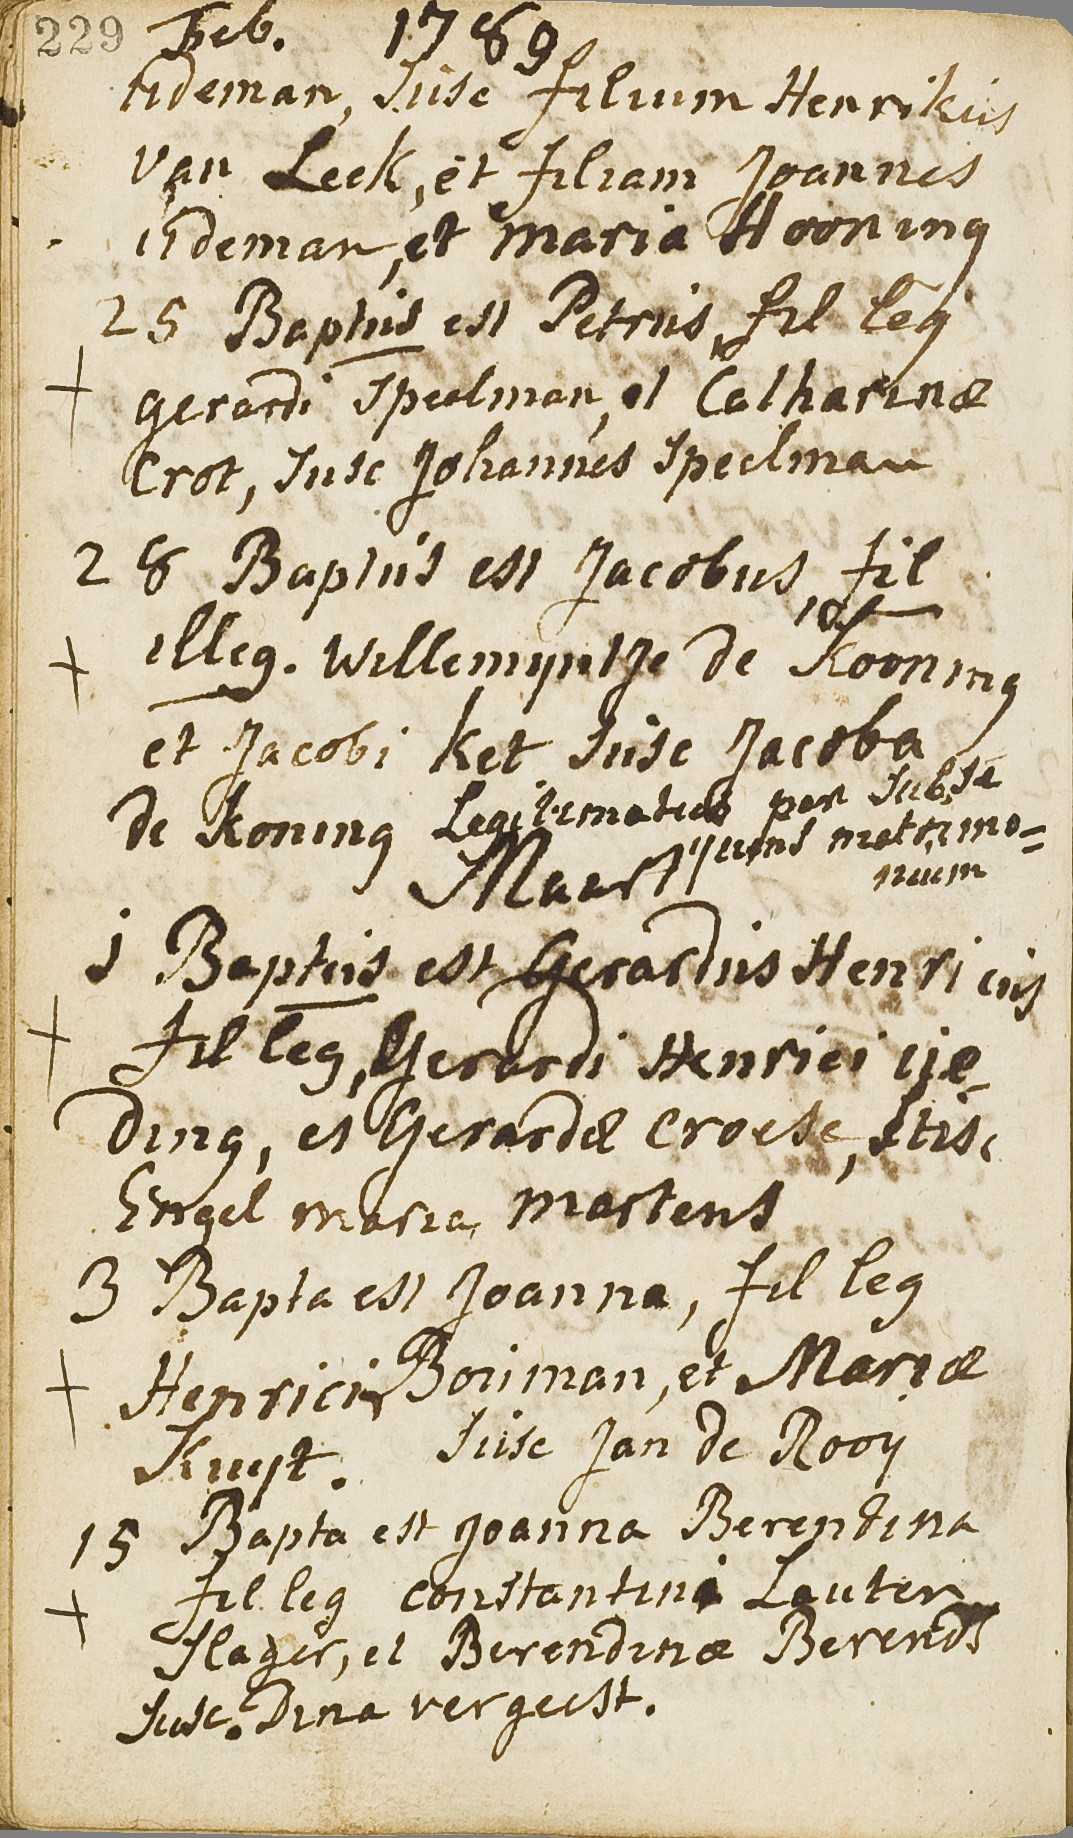 229 Feb. 1789
tideman, Susc filium Henrikus
van Leek, et filiam Joannes
tideman, et maria Hooning
25 Baptus est Petrus, fil leg
+ gerardi Speelman, et Catharinæ
Crot, Susc Johannes Speelman
28 Baptus est Jacobus, fil
+ illeg. Willemyntje de Kooning
et Jacobi Ket Susc Jacoba
de Koning Legitimatus per subse
quens matrimo=
nium
Maart
1 Baptus est Gerardus Henricus
+ fil leg, Gerardi Henrici
ding, et Gerardæ Croese, Susc
Engel maria martens
3 Bapta est Joanna, fil leg
+ Henrici Bouman, et Mariæ
Kuyt. Susc Jan de Rooy
15 Bapta est Joanna Berendina
+ fil leg constantini Lauter
slager, et Berendinæ Berends
Susc. Dina vergeest.